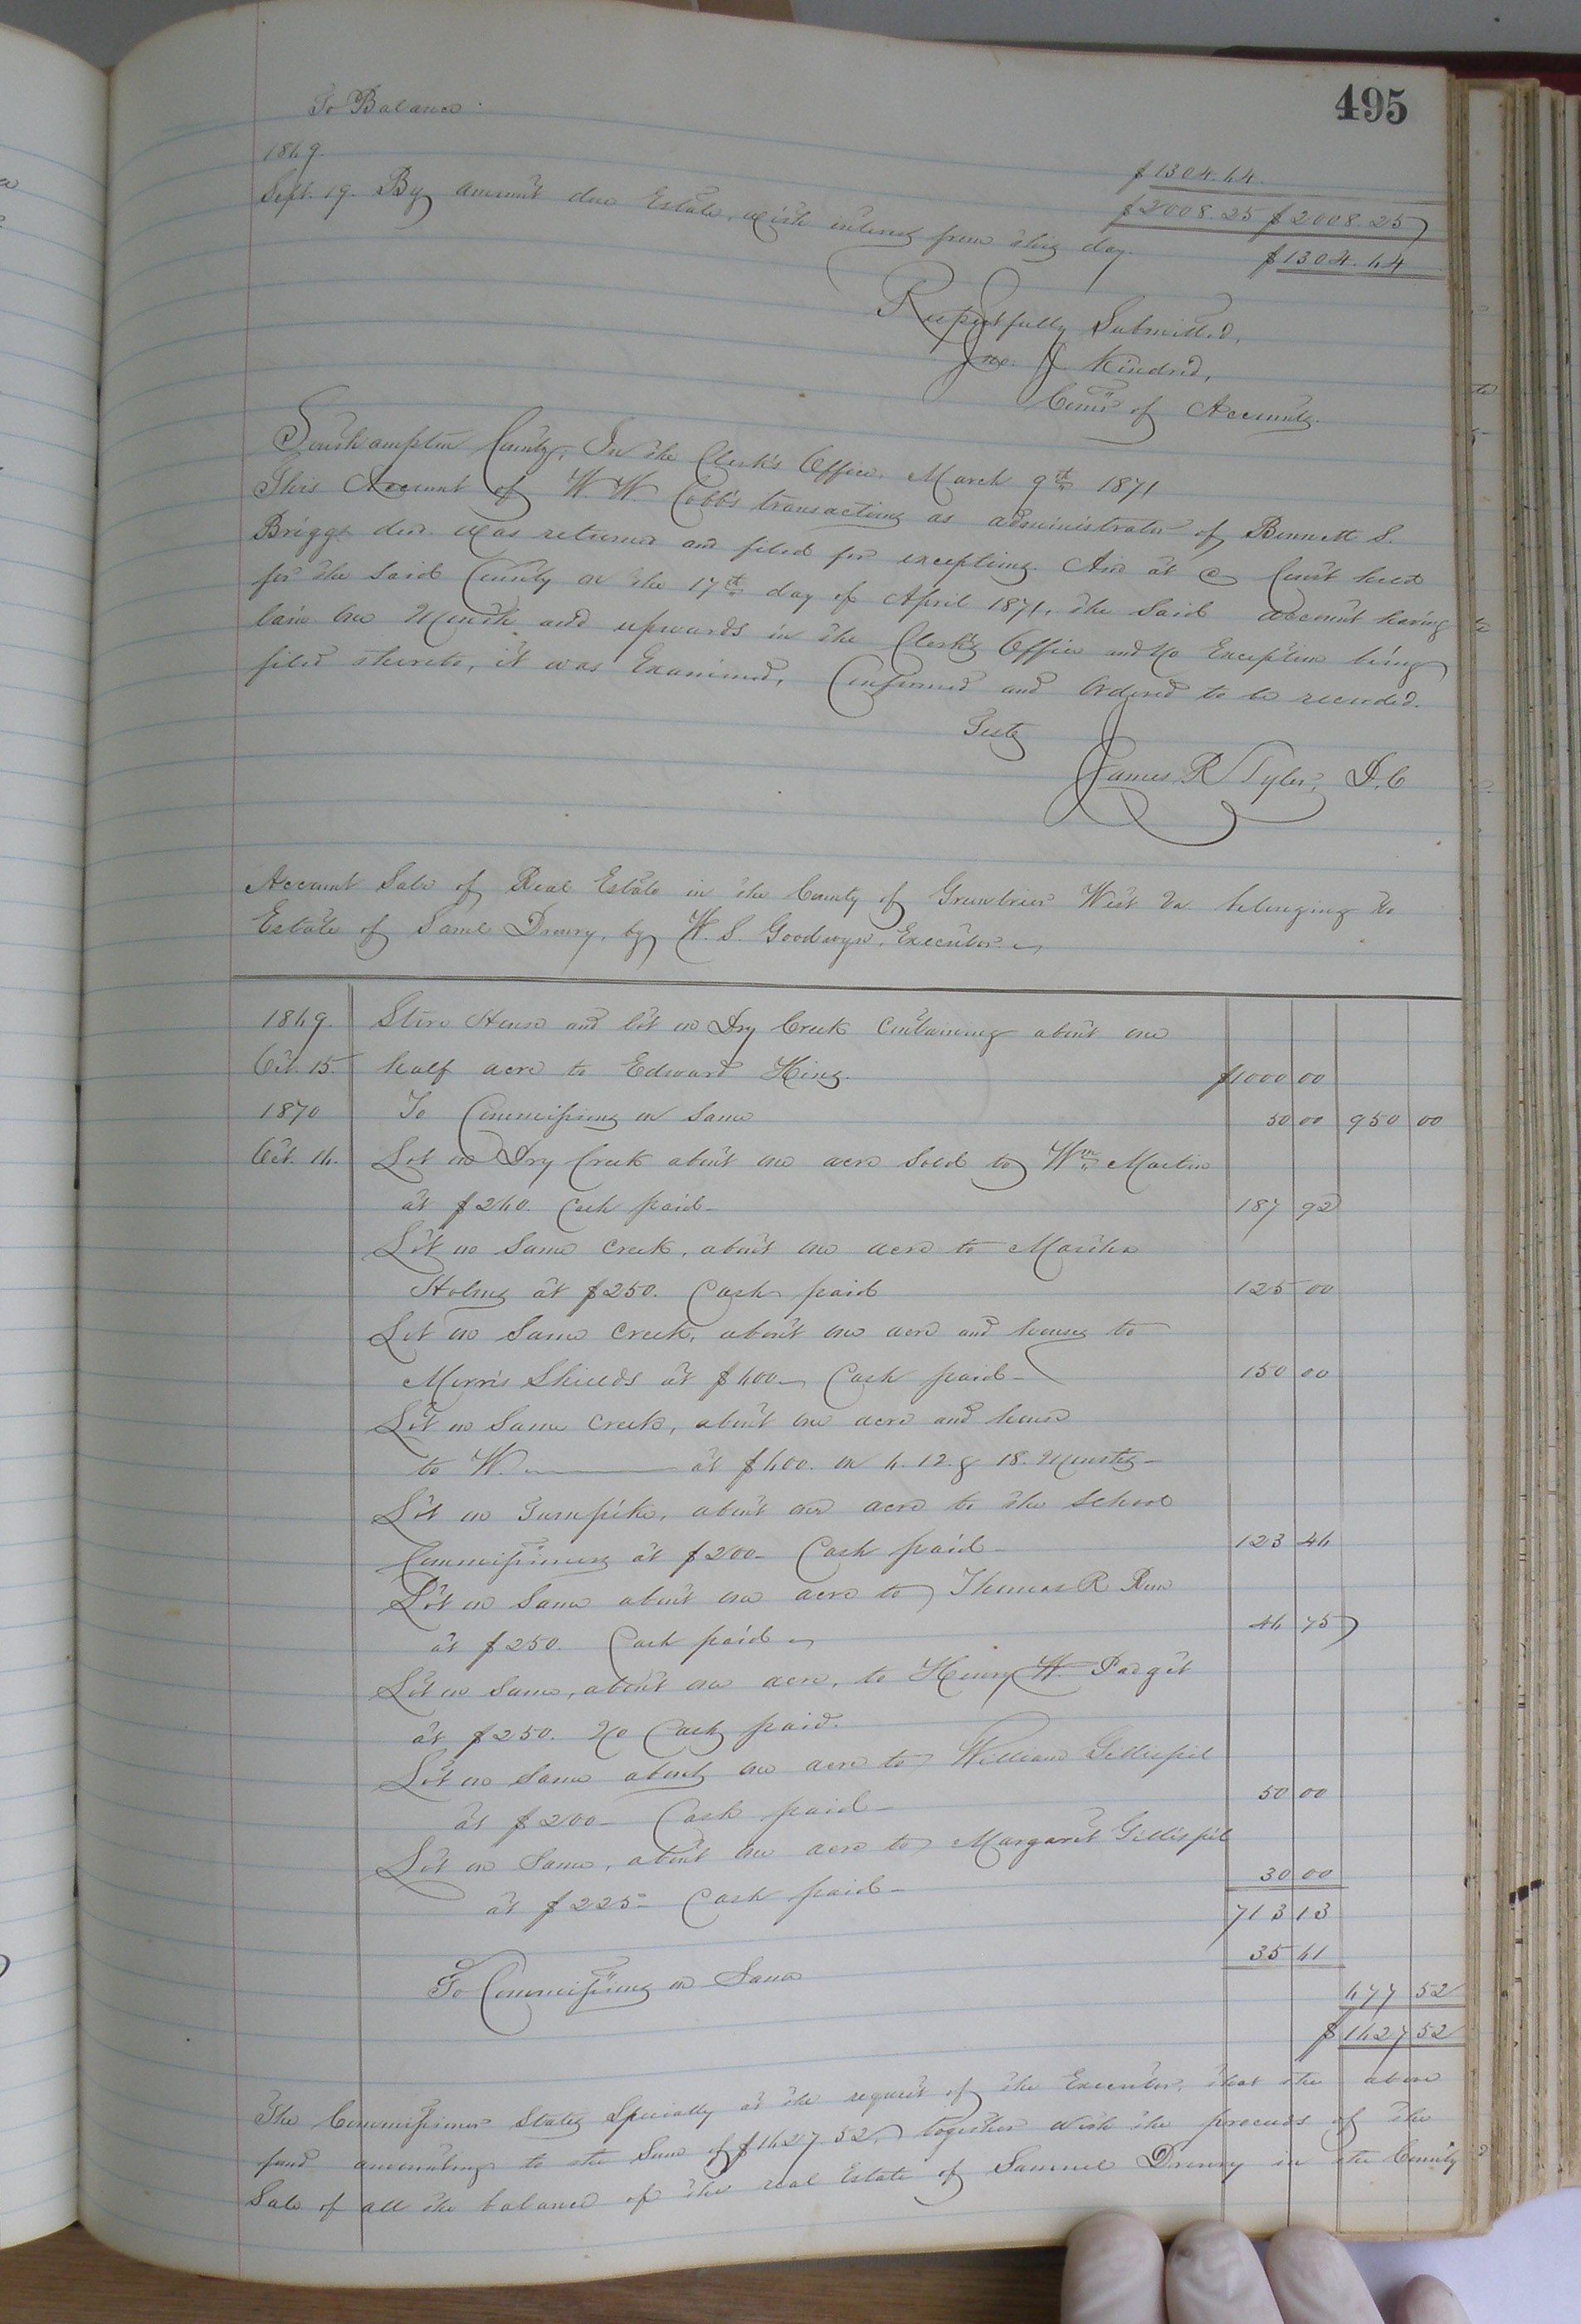 495
To Balance
$1304.64.
1869.
$2008.25 $2008.25
Sept. 19. By amount due Estate, with interest from this day.
$1304.64
Respectfully Submitted,
Jno. J. Kindred,
Comr of Accounts.
Southampton County, In the Clerk's Office, March 9th 1871
This Account of W W Cobb's transactions as administrator of Bennett S.
Briggs decd. was returned and filed for exceptions. And at a Court held
for the said County on the 17th day of April 1871, the said account having
lain one Month and upwards in the Clerk's Office and No Exception being
filed thereto, it was Examined, Confirmed and Ordered to be recorded.
Teste
James R Tyler, D.C
Account Sale of Real Estate in the County of Greenbrier West Va belonging to
Estate of Saml Drewry, by W. S. Goodwyn, Executor.
1869. Store House and lot on Dry Creek Containing about one
Oct. 15 half acre to Edward King. $1000 00
1870 To Commissions on Same 50 00 950 00
Oct. 16. Lot on Dry Creek about one acre Sold to Wm Martin
at $260. Cash paid- 187 92
Lot on Same Creek, about one acre to Martha
Holmes at $250. Cash paid 125 00
Lot on Same Creek, about one acre and houses to
Morris Shields at $600- Cash paid- 150 00
Lot on Same Creek, about one acre and house
to W. ——— at $600. on 6. 12. & 18. Months-
Lot on Turnpike, about one acre to the School
Commissioners at $200- Cash paid- 123 46
Lot on Same about one acre to Thomas R
at $250. Cash paid- 46 75
Lot on Same, about one acre, to Henry W. Padget
at $250. No Cash paid.
Lot on Same about one acre to William Gillispie
at $200- Cash paid- 50 00
Lot on Same, about one acre to Margaret Gillispie
at $225- Cash paid- 30 00
713 13
To Commissions on Same 35 61
677 52
$1627 52
The Commissioner States Specially at the request of the Executor, that the above
fund amounting to the Sum of $1627.52, together with the proceeds of the
Sale of all the balance of the real Estate of Samuel Drewry in the County